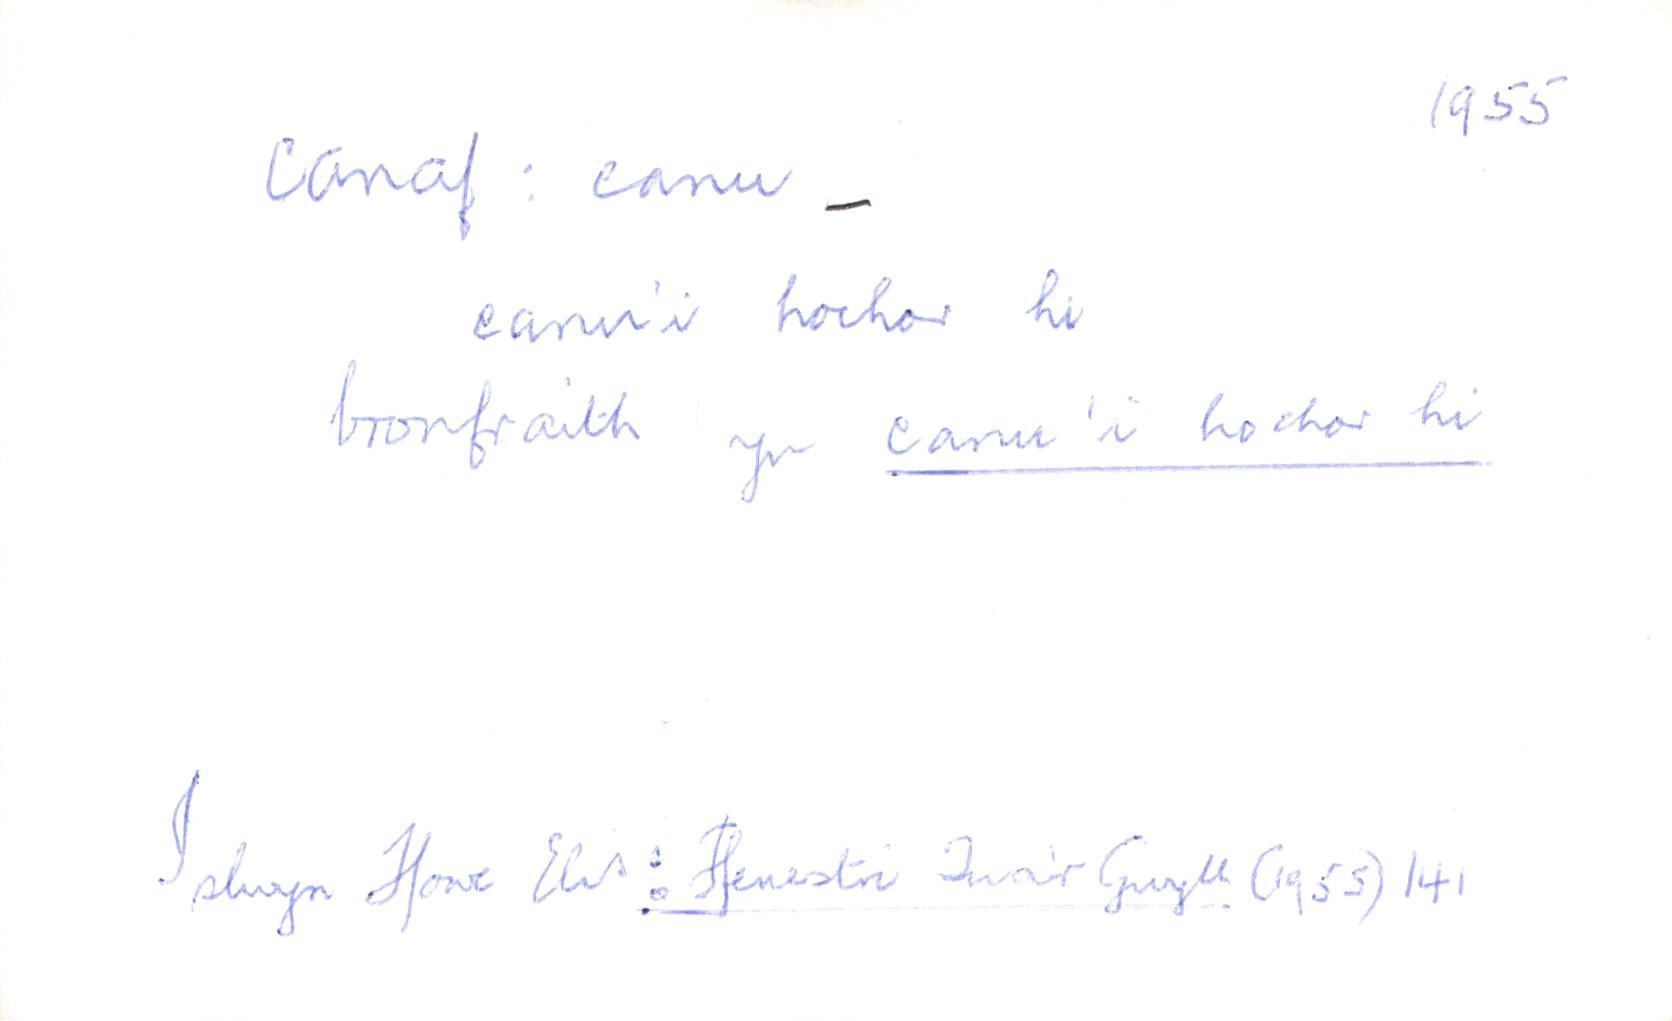 1955
canaf : canu –
canu'i hochor hi
bronfraith yn canu'i hochor hi
Islwyn Ffowc Elis : Ffenestri Tua'r Gwyll (1955) 141